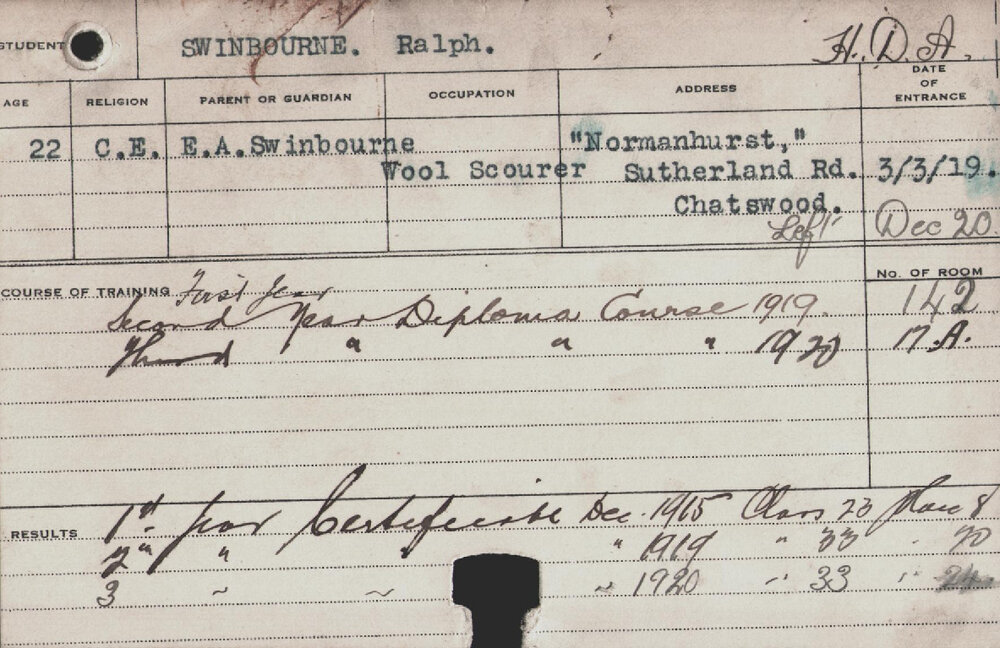 STUDENT SWINBOURNE. Ralph. H.D.A.
AGE RELIGION PARENT OR GUARDIAN OCCUPATION ADDRESS DATE OF ENTRANCE
22 C.E. E.A.Swinbourne "Normanhurst,"
Wool Scourer Sutherland Rd. 3/3/19.
Chatswood.
Left Dec 20.
No. OF ROOM
COURSE OF TRAINING First Year
Second Year Diploma Course 1919. 142
Third " " " 1920 17.A.
RESULTS 1st Year Certificate Dec. 1915 Class 23 Place 8
2nd " " " 1919 " 33 " 20
3 ~ ~ ~ 1920 " 33 " 24